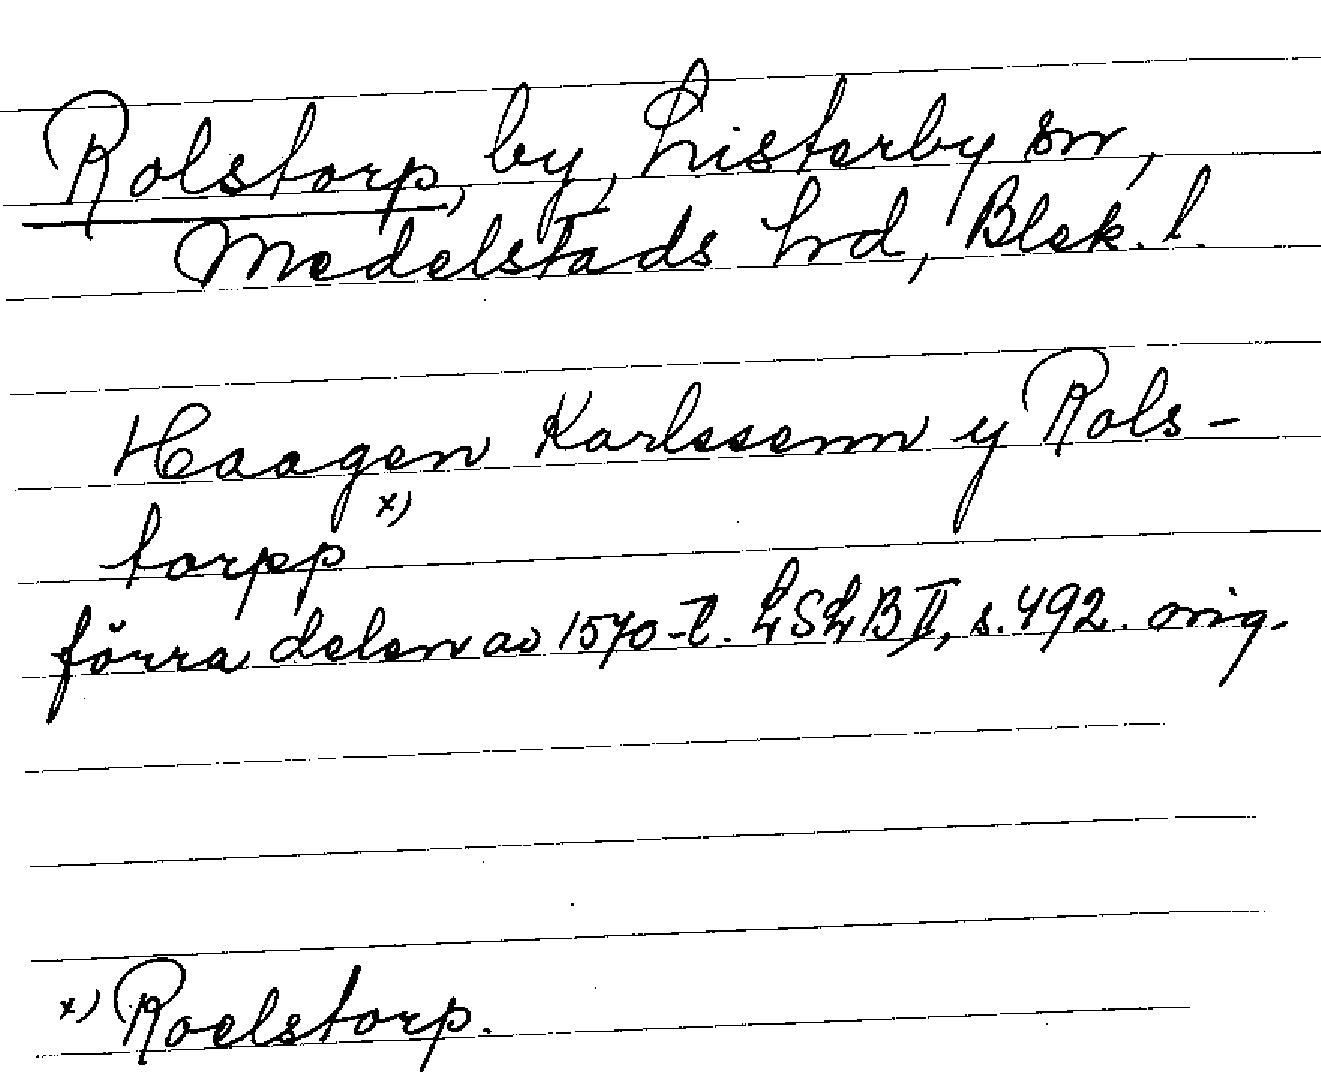 Rolstorp, by, Listerby sn,
Medelstads hd, Blek. l.
Haagen Karlssenn y Rols-
torpp x)
förra delen av 1570-t. LSLB II, s. 492. orig.
x) Roelstorp.